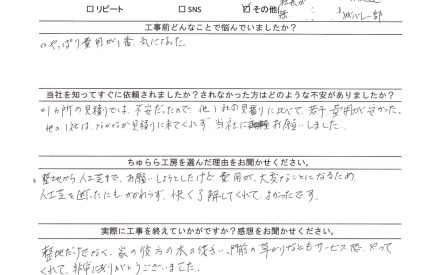 □リピート □SNS ☑その他(
工事前どんなことで悩んでいましたか?
・やっぱり費用が1番気になった。
当社を知ってすぐに依頼されましたか?されなかった方はどのような不安がありましたか?
・1カ所の見積りでは、不安だったので、他1社の見積りに比べて、若干費用が安かった。
他の1社は、なかなか見積りに来てくれず、当社にお願いしました。
ちゅらら工房を選んだ理由をお聞かせください。
・整地から人工芝まで、お願いしようとしたけど費用が、大変なことになるため
人工芝を断ったにもかかわらず、快く了解してくれて、よかったです。
実際に工事を終えていかがですか?感想をお聞かせください。
整地だけでなく、家の後方の木の伐さい、門前の草がりなどもサービスで、やって
くれて、非常にありがとうございました。